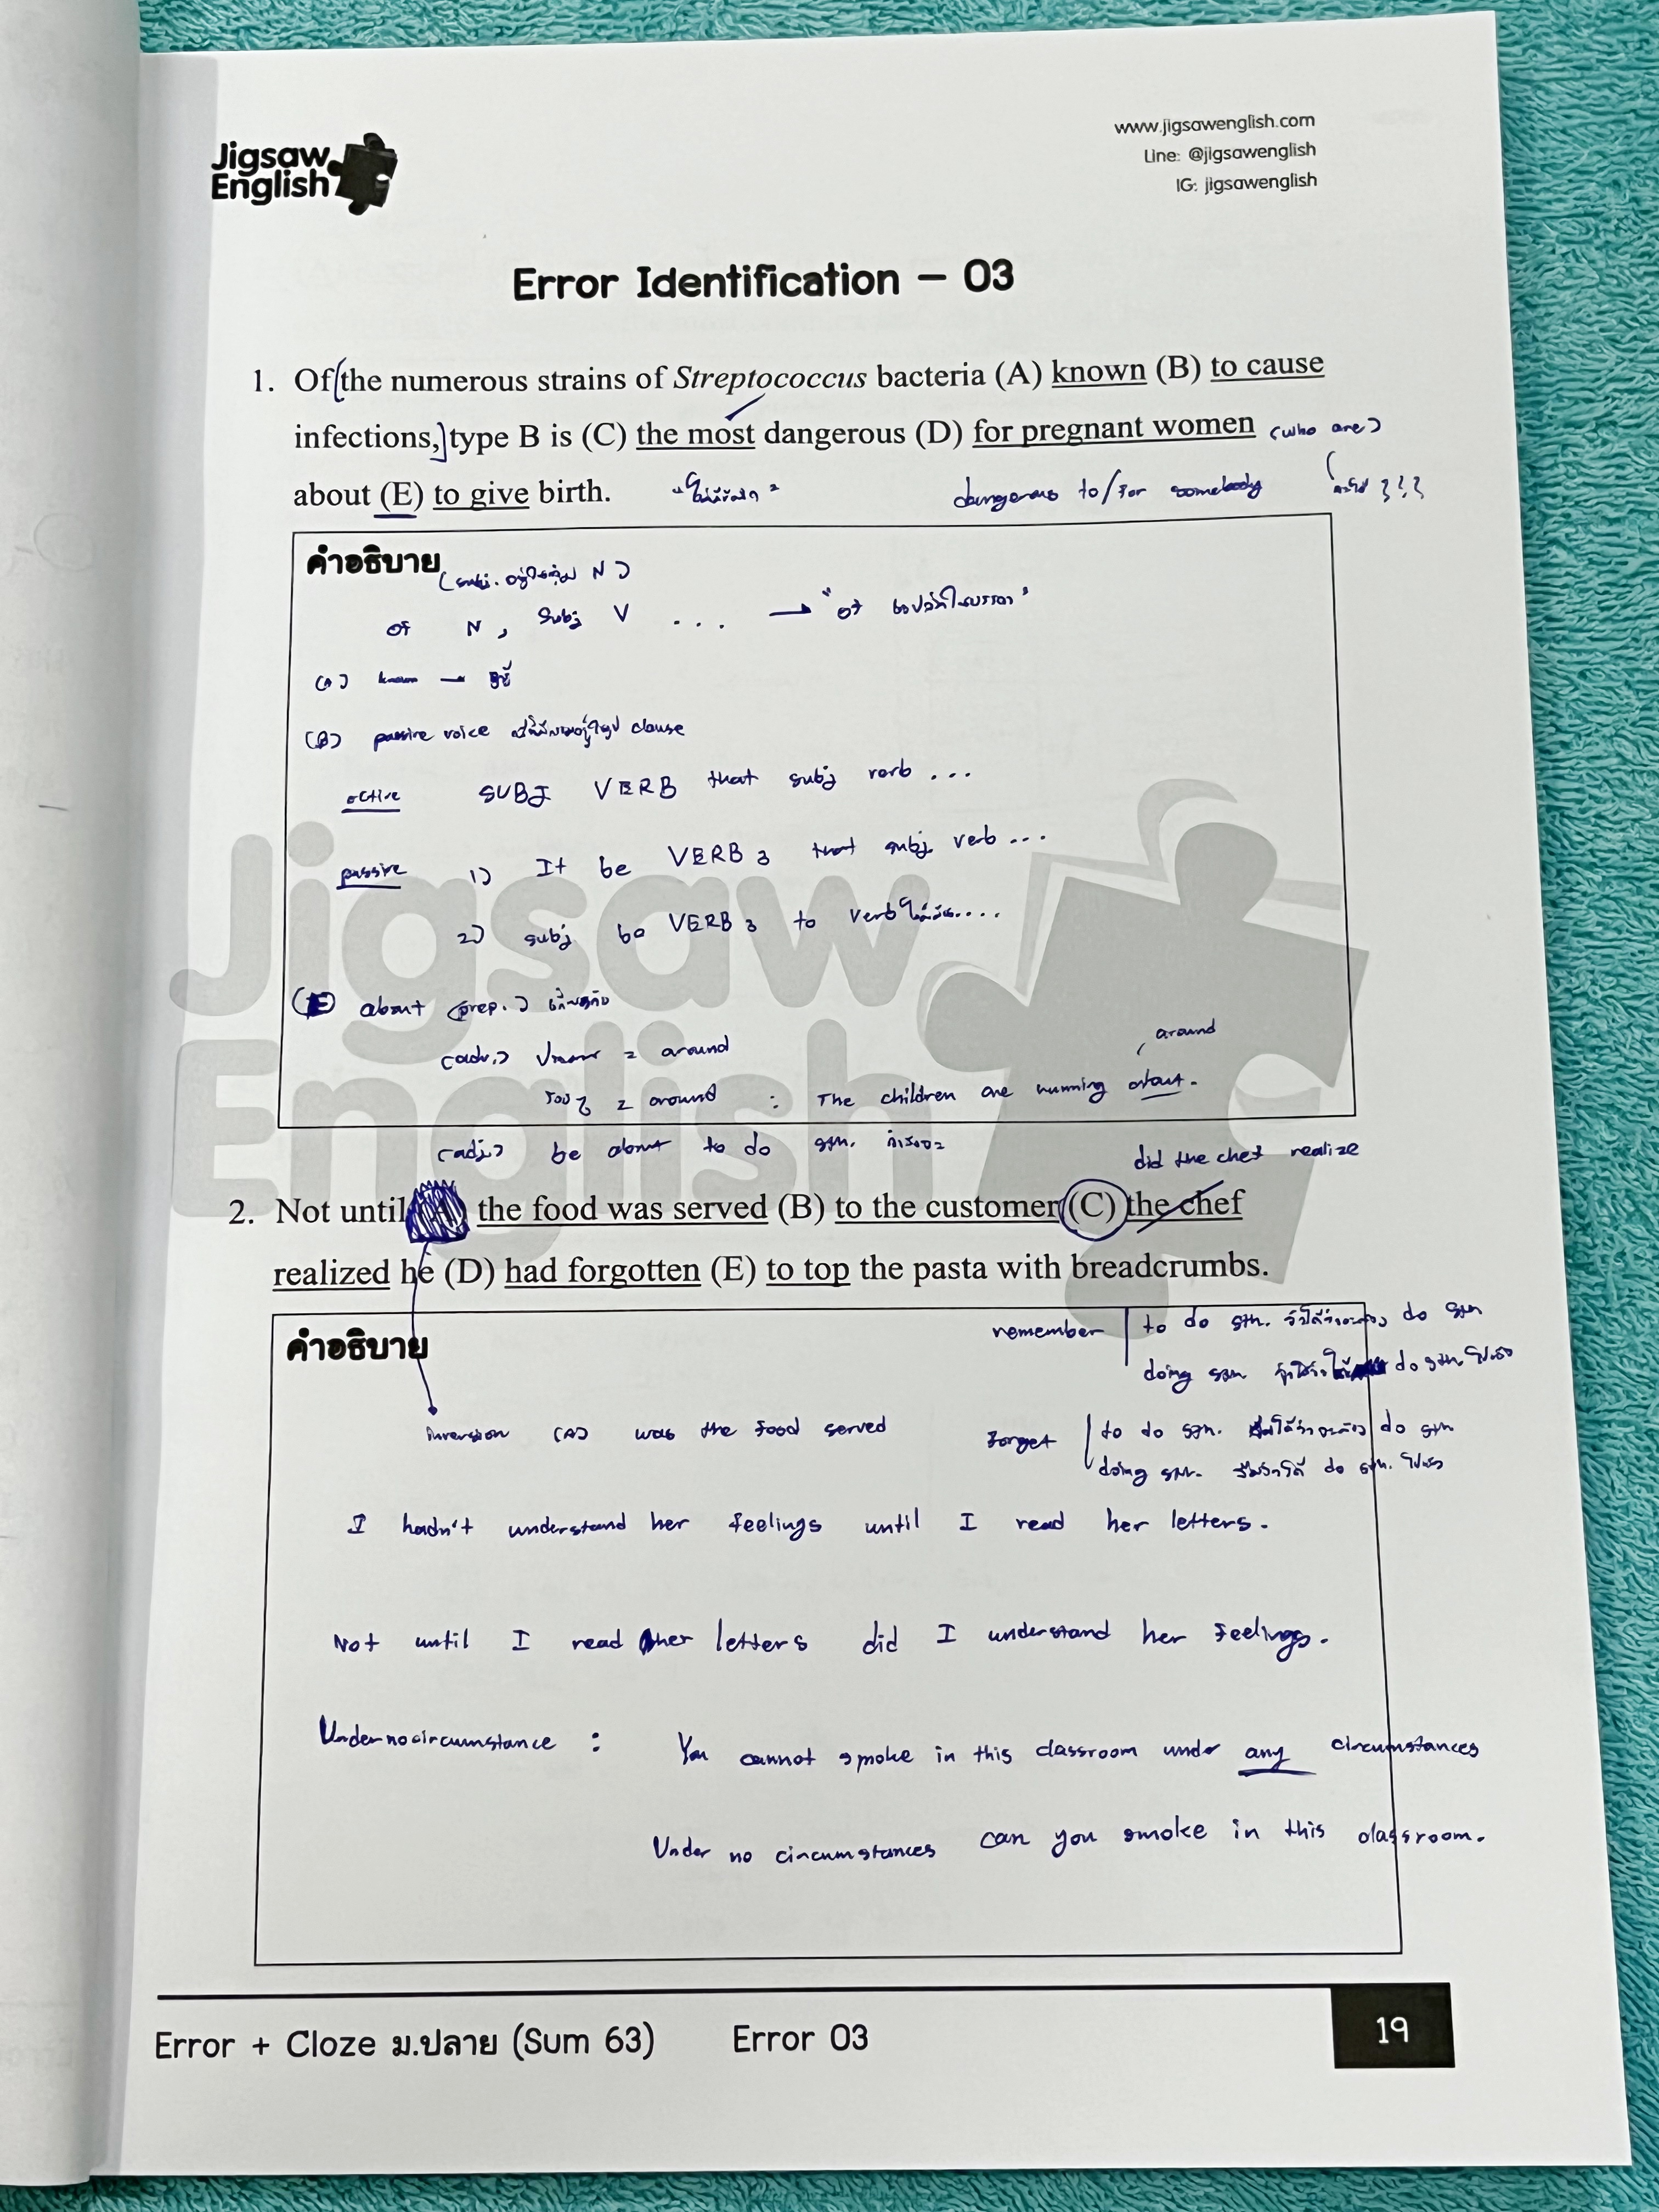 Jigsaw
English
www.jigsawenglish.com
Line: @jigsawenglish
IG: jigsawenglish
Error Identification – 03
1. Of the numerous strains of Streptococcus bacteria (A) known (B) to cause
infections, type B is (C) the most dangerous (D) for pregnant women (who are)
about (E) to give birth.
dangerous to/for somebody
คำอธิบาย
of N, subj V ...
(A) known →
(B) passive voice clause
active SUBJ VERB that subj verb ...
passive 1) It be VERB 3 that subj verb ...
2) subj be VERB 3 to verb
(E) about (prep.) เกี่ยวกับ
(adv.) = around
around
รอบๆ = around : The children are running about.
(adj.) be about to do sth. กำลังจะ
did the chef realize
2. Not until (A) the food was served (B) to the customer (C) the chef
realized he (D) had forgotten (E) to top the pasta with breadcrumbs.
คำอธิบาย
remember to do sth. do sth
doing sth. do sth.
inversion (A) was the food served
forget to do sth. do sth
doing sth. do sth.
I hadn't understand her feelings until I read her letters.
Not until I read her letters did I understand her feelings.
Under no circumstance : You cannot smoke in this classroom under any circumstances
Under no circumstances can you smoke in this classroom.
Jigsaw
English
Error + Cloze ม.ปลาย (Sum 63) Error 03
19